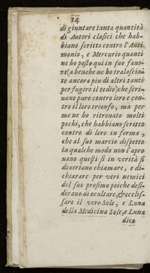 24
di giuntare tanta quantità
di Autori clasici che hab-
biano scritto contro l' Anti-
monio, e Mercurio quanti
ne ho posto qui in suo favo-
re, e benche ne ho tralasciati
ancora piu di altri tanti
per fugire il tedio, che scri-
vono pure contro loro e con-
tro il loro rimedio, ma per
me ne ho ritrovato molti
pochi, che habbiano scritto
contro di loro in forma,
che al suo marcio dispetto
in qualche modo non l'apro-
vano questi si in verità si
doveriano chiamare, e di-
chiarare per veri nemici
del suo prosimo poiche deside-
rano di occultare, & eccelis-
sare il vero Sole, e Luna
della Medicina Sole, e Luna
dica